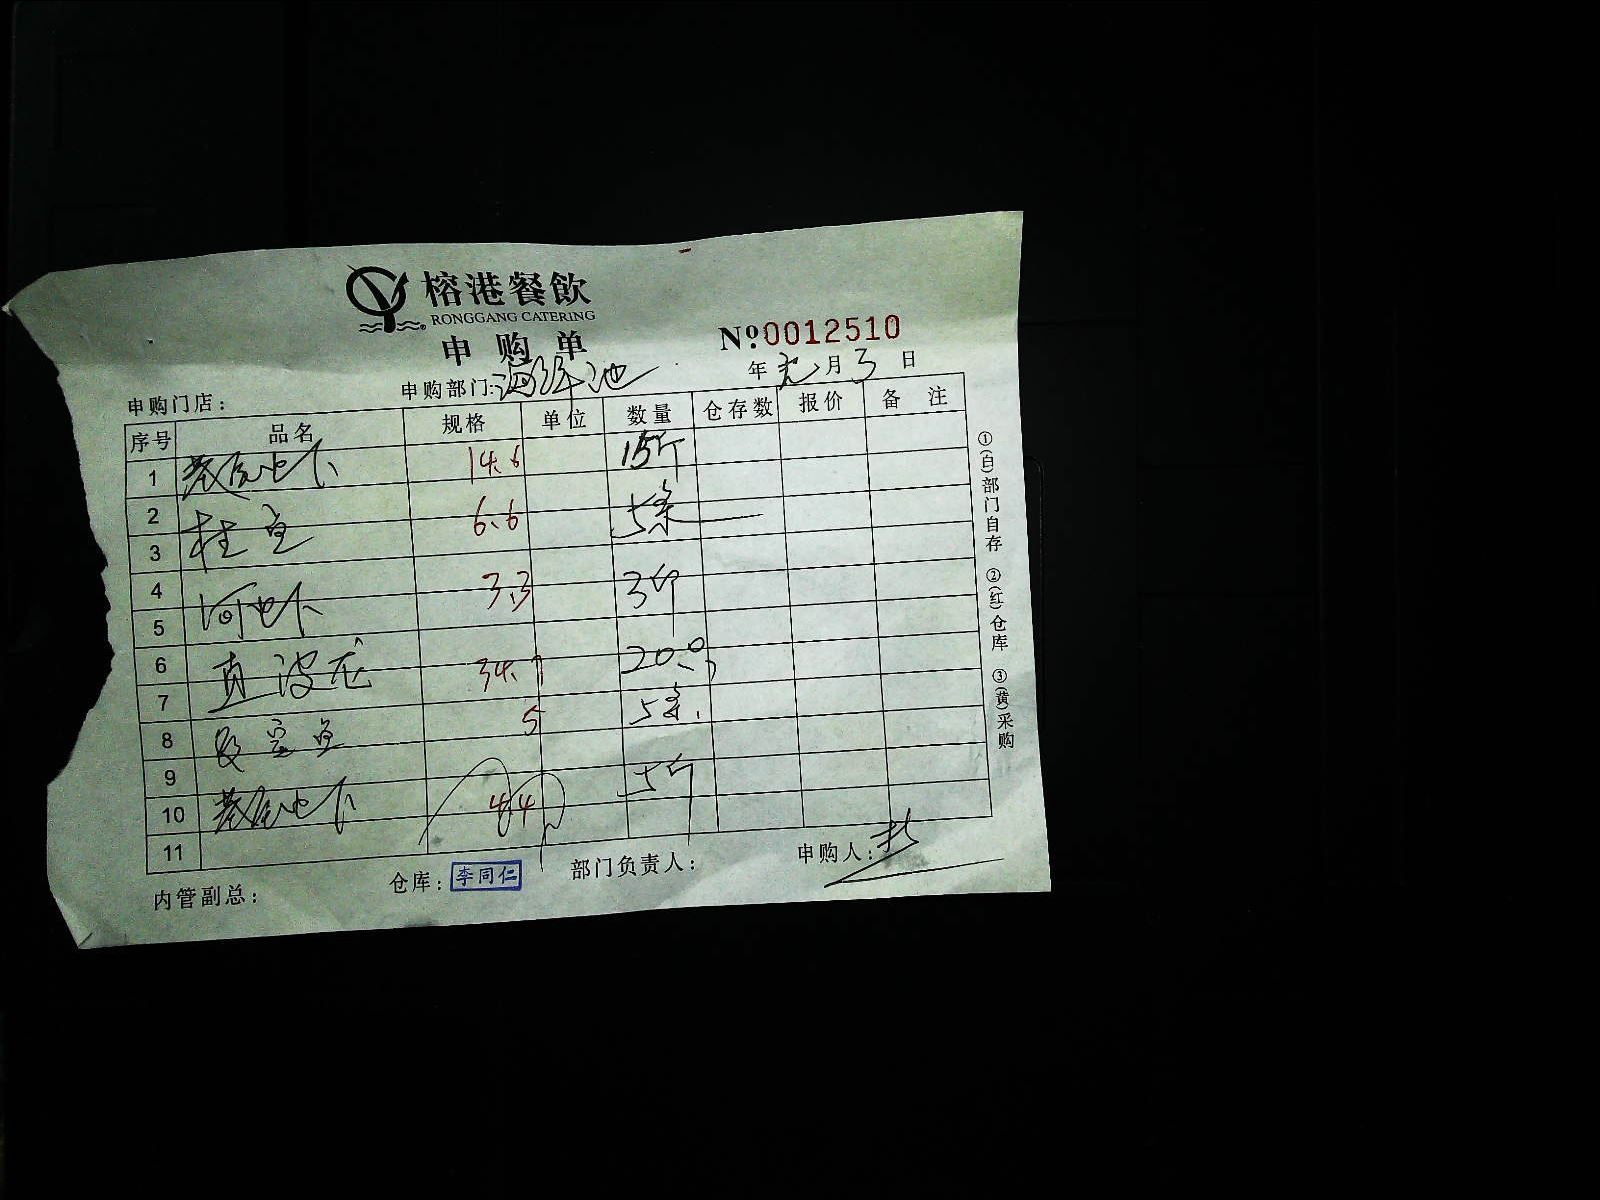 榕港餐飲
RONGGANG CATERING
申购单
№0012510
年 元 月 3 日
申购门店： 申购部门:海鲜池
序号 品名 规格 单位 数量 仓存数 报价 备注
1 14.6 15斤
2 6.6 5条
3 桂鱼
4 3.3 3斤
5 河
6 34.7 20只
7 波龙
8 5 5条
9 5斤
10 4.4
11
内管副总： 仓库：李同仁 部门负责人： 申购人：
①(白)部门自存 ②(红)仓库 ③(黄)采购